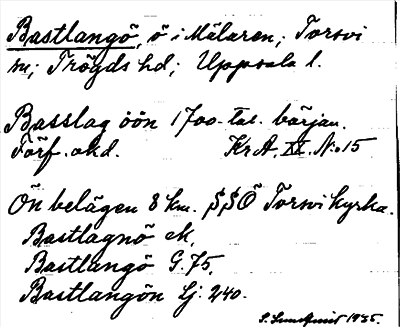 Bastlangö, ö i Mälaren; Torsvi
sn; Trögds hd; Uppsala l.
Basslag öön 1700-tal. början.
Förf. okd. Kr A. XX. N:o 15
Ön belägen 8 km. SSÖ Torsvi kyrka.
Bastlagnö ek.
Bastlangö G. 75.
Bastlangön Lj. 240.
S. Lundqvist 1935.